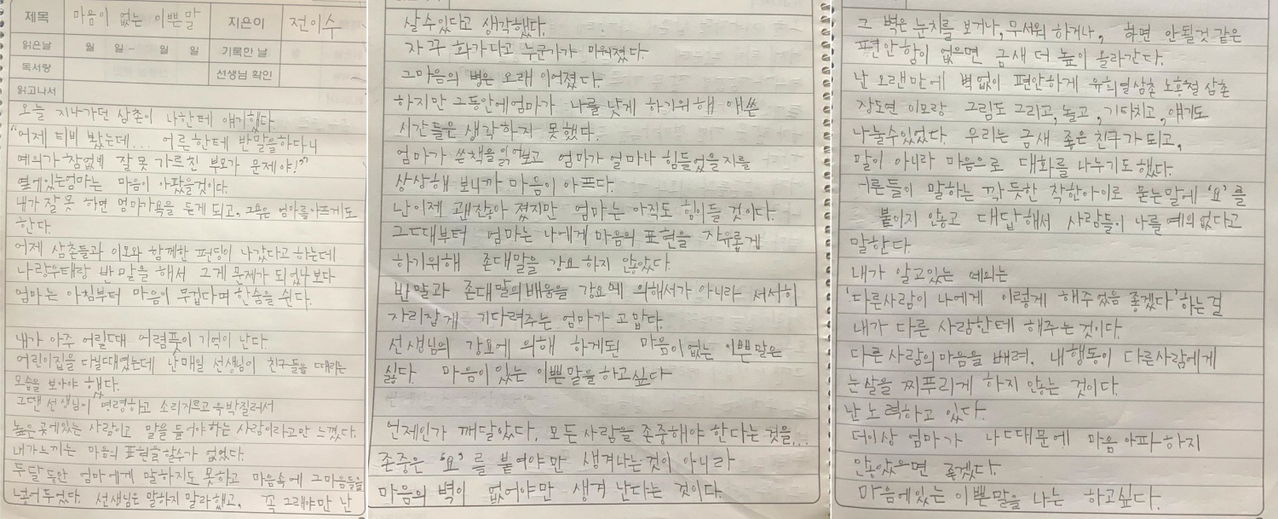 제목 마음이 없는 이쁜말 지은이 전이수
읽은날 월 일 ~ 월 일 기록한 날
독서량 선생님 확인
읽고나서
오늘 지나가던 삼촌이 나한테 얘기했다
"어제 티비 봤는데... 어른한테 반말을하다니
예의가 참없네 잘못 가르친 부모가 문제야!"
옆에있는엄마는 마음이 아팠을것이다.
내가 잘못 하면 엄마가욕을 듣게 되고, 그욕은 엄마를아프게도
한다.
어제 삼촌들과 이모와 함께한 팬팅이 나갔다고 하는데
나랑우태랑 반말을 해서 그게 문제가 되었나보다
엄마는 아침부터 마음이 무겁다며 한숨을 쉰다.
내가 아주 어릴때 어렴풋이 기억이 난다
어린이집을 다닐때였는데 난 매일 선생님이 친구들을 때리는
모습을 보아야 했다.
그땐 선생님이 명령하고 소리지르고 윽박질러서
높은곳에있는 사람이고 말을 들어야 하는 사람이라고만 느꼈다.
내가느끼는 마음의 표현을 할수가 없었다.
두달동안 엄마에게 말하지도 못하고 마음속에 그마음들을
넣어두었다. 선생님은 말하지 말라했고, 꼭 그래야만 난
살수있다고 생각했다.
자꾸 화가나고 누군가가 미워졌다.
그마음의 병은 오래 이어졌다.
하지만 그동안에 엄마가 나를 낫게 하기위해 애쓴
시간들은 생각하지 못했다.
엄마가 쓴책을읽어보고 엄마가 얼마나 힘들었을지를
상상해 보니까 마음이 아프다.
난이제 괜찮아 졌지만 엄마는 아직도 힘이들 것이다.
그때부터 엄마는 나에게 마음의 표현을 자유롭게
하기위해 존대말을 강요 하지 않았다.
반말과 존대말의배움을 강요에 의해서가 아니라 서서히
자리잡게 기다려주는 엄마가 고맙다.
선생님의 강요에 의해 하게된 마음이없는 이쁜말은
싫다. 마음이 있는 이쁜말을 하고싶다
언제인가 깨달았다. 모든사람을 존중해야 한다는 것을...
존중은 '요'를 붙여야만 생겨나는것이 아니라
마음의 벽이 없어야만 생겨 난다는 것이다.
그 벽은 눈치를 보거나, 무서워 하거나, 하면 안될것 같은
편안함이 없으면 금새 더 높이 올라간다.
난 오랜만에 벽없이 편안하게 유희열삼촌 노홍철 삼촌
장도연 이모랑 그림도 그리고, 놀고, 기다치고, 얘기도
나눌수있었다. 우리는 금새 좋은친구가 되고,
말이 아니라 마음으로 대화를 나누기도했다.
어른들이 말하는 깍듯한 착한아이로 묻는말에 '요'를
붙이지 않고 대답해서 사람들이 나를 예의없다고
말한다.
내가 알고있는 예의는
'다른사람이 나에게 이렇게 해주었음 좋겠다' 하는걸
내가 다른 사람한테 해주는것이다.
다른 사람의 마음을 배려. 내행동이 다른사람에게
눈살을 찌푸리게 하지 않는 것이다.
난 노력하고 있다.
더이상 엄마가 나때문에 마음 아파하지
않았으면 좋겠다.
마음에있는 이쁜말을 나는 하고싶다.